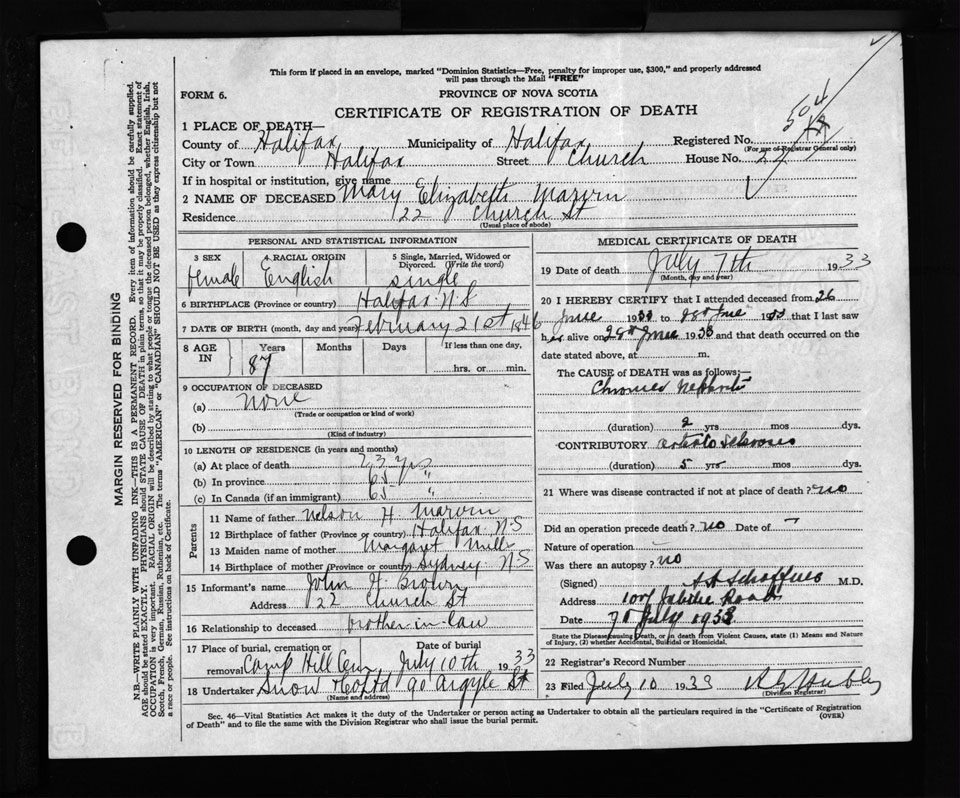 This form if placed in an envelope, marked "Dominion Statistics—Free, penalty for improper use, $300," and properly addressed
will pass through the Mail "FREE"
FORM 6. PROVINCE OF NOVA SCOTIA
CERTIFICATE OF REGISTRATION OF DEATH
1 PLACE OF DEATH—
County of Halifax Municipality of Halifax Registered No. 504
(For use of Registrar General only)
City or Town Halifax Street Church House No. 22
If in hospital or institution, give name
2 NAME OF DECEASED Mary Elizabeth Marvin
Residence 22 Church St
(Usual place of abode)
PERSONAL AND STATISTICAL INFORMATION
3 SEX 4 RACIAL ORIGIN 5 Single, Married, Widowed or Divorced. (Write the word)
female English single
6 BIRTHPLACE (Province or country) Halifax N.S
7 DATE OF BIRTH (month, day and year) February 21st 1846
8 AGE IN Years Months Days If less than one day,
87 hrs. or min.
9 OCCUPATION OF DECEASED
(a) none
(Trade or occupation or kind of work)
(b)
(Kind of industry)
10 LENGTH OF RESIDENCE (in years and months)
(a) At place of death yrs
(b) In province 65 "
(c) In Canada (if an immigrant) 65 "
Parents
11 Name of father Nelson H. Marvin
12 Birthplace of father (Province or country) Halifax N-S
13 Maiden name of mother Margaret
14 Birthplace of mother (Province or country) Sydney N-S
15 Informant's name John H. Brown
Address 22 Church St
16 Relationship to deceased brother-in-law
17 Place of burial, cremation or removal Date of burial
Camp Hill Cem July 10th 1933
18 Undertaker Snow & Co Ltd 90 Argyle St
(Name and address)
MEDICAL CERTIFICATE OF DEATH
19 Date of death July 7th 1933
(Month, day and year)
20 I HEREBY CERTIFY that I attended deceased from 26
June 1933 to 28th June 1933 that I last saw
her alive on 28th June 1933 and that death occurred on the
date stated above, at m.
The CAUSE of DEATH was as follows:—
Chronic Nephritis
(duration) 2 yrs mos dys.
CONTRIBUTORY arterio sclerosis
(duration) 5 yrs mos dys.
21 Where was disease contracted if not at place of death? no
Did an operation precede death? no Date of —
Nature of operation
Was there an autopsy? no
(Signed) M.D.
Address Road
Date July 1933
State the Disease causing Death, or in death from Violent Causes, state (1) Means and Nature
of Injury, (2) whether Accidental, Suicidal or Homicidal.
22 Registrar's Record Number
23 Filed July 10 1933
(Division Registrar)
Sec. 46—Vital Statistics Act makes it the duty of the Undertaker or person acting as Undertaker to obtain all the particulars required in the "Certificate of Registration
of Death" and to file the same with the Division Registrar who shall issue the burial permit. (OVER)
MARGIN RESERVED FOR BINDING
N.B.—WRITE PLAINLY WITH UNFADING INK—THIS IS A PERMANENT RECORD. Every item of information should be carefully supplied.
AGE should be stated EXACTLY. PHYSICIANS should STATE CAUSE OF DEATH in plain terms, so that it may be properly classified. Exact statement of
OCCUPATION is very important. RACIAL ORIGIN will be described by stating to what people or tongue the deceased person belonged, whether English, Irish,
Scotch, French, German, Russian, Ruthenian, etc. The terms "AMERICAN" or "CANADIAN" SHOULD NOT BE USED as they express citizenship but not
a race or people. See instructions on back of Certificate.